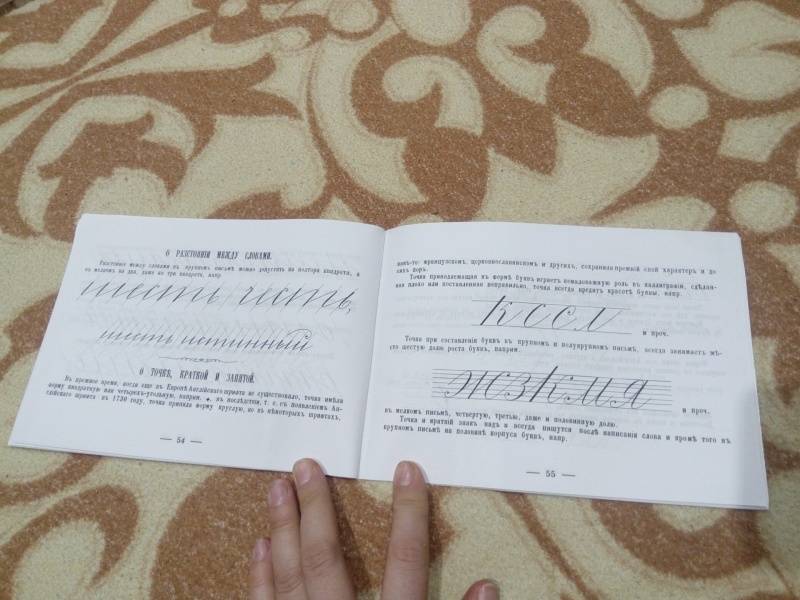 О РАЗСТОЯНІИ МЕЖДУ СЛОВАМИ.
Разстояніе между словами въ крупномъ письмѣ можно допустить на полтора квадрата, а
въ мелкомъ на два, даже на три квадрата, напр.
шесть честь,
шесть истинный
О ТОЧКѢ, КРАТКОЙ И ЗАПЯТОЙ.
Въ прежнее время, когда еще въ Европѣ Англійскаго шрифта не существовало, точка имѣла
форму квадратную или четырехъ-угольную, наприм. въ послѣдствіи, т. е. съ появленіемъ Ан-
глійскаго шрифта въ 1730 году, точка приняла форму круглую, но въ нѣкоторыхъ шрифтахъ,
— 54 —
какъ-то: французскомъ, церковнославянскомъ и другихъ, сохранила прежній свой характеръ и до
сихъ поръ.
Точка принадлежащая къ формѣ буквъ играетъ немаловажную роль въ каллиграфіи, сдѣлан-
ная плохо или поставленная неправильно, точка всегда вредитъ красотѣ буквы, напр.
и проч.
Точка при составленіи буквъ въ крупномъ и полукрупномъ письмѣ, всегда занимаетъ мѣ-
сто шестую долю роста буквъ, наприм.
ЖЗКМЯ
и проч.
въ мелкомъ письмѣ, четвертую, третью, даже и половинную долю.
Точка и краткій знакъ надъ и всегда пишутся послѣ написанія слова и кромѣ того въ
крупномъ письмѣ на половинѣ корпуса буквъ, напр.
— 55 —